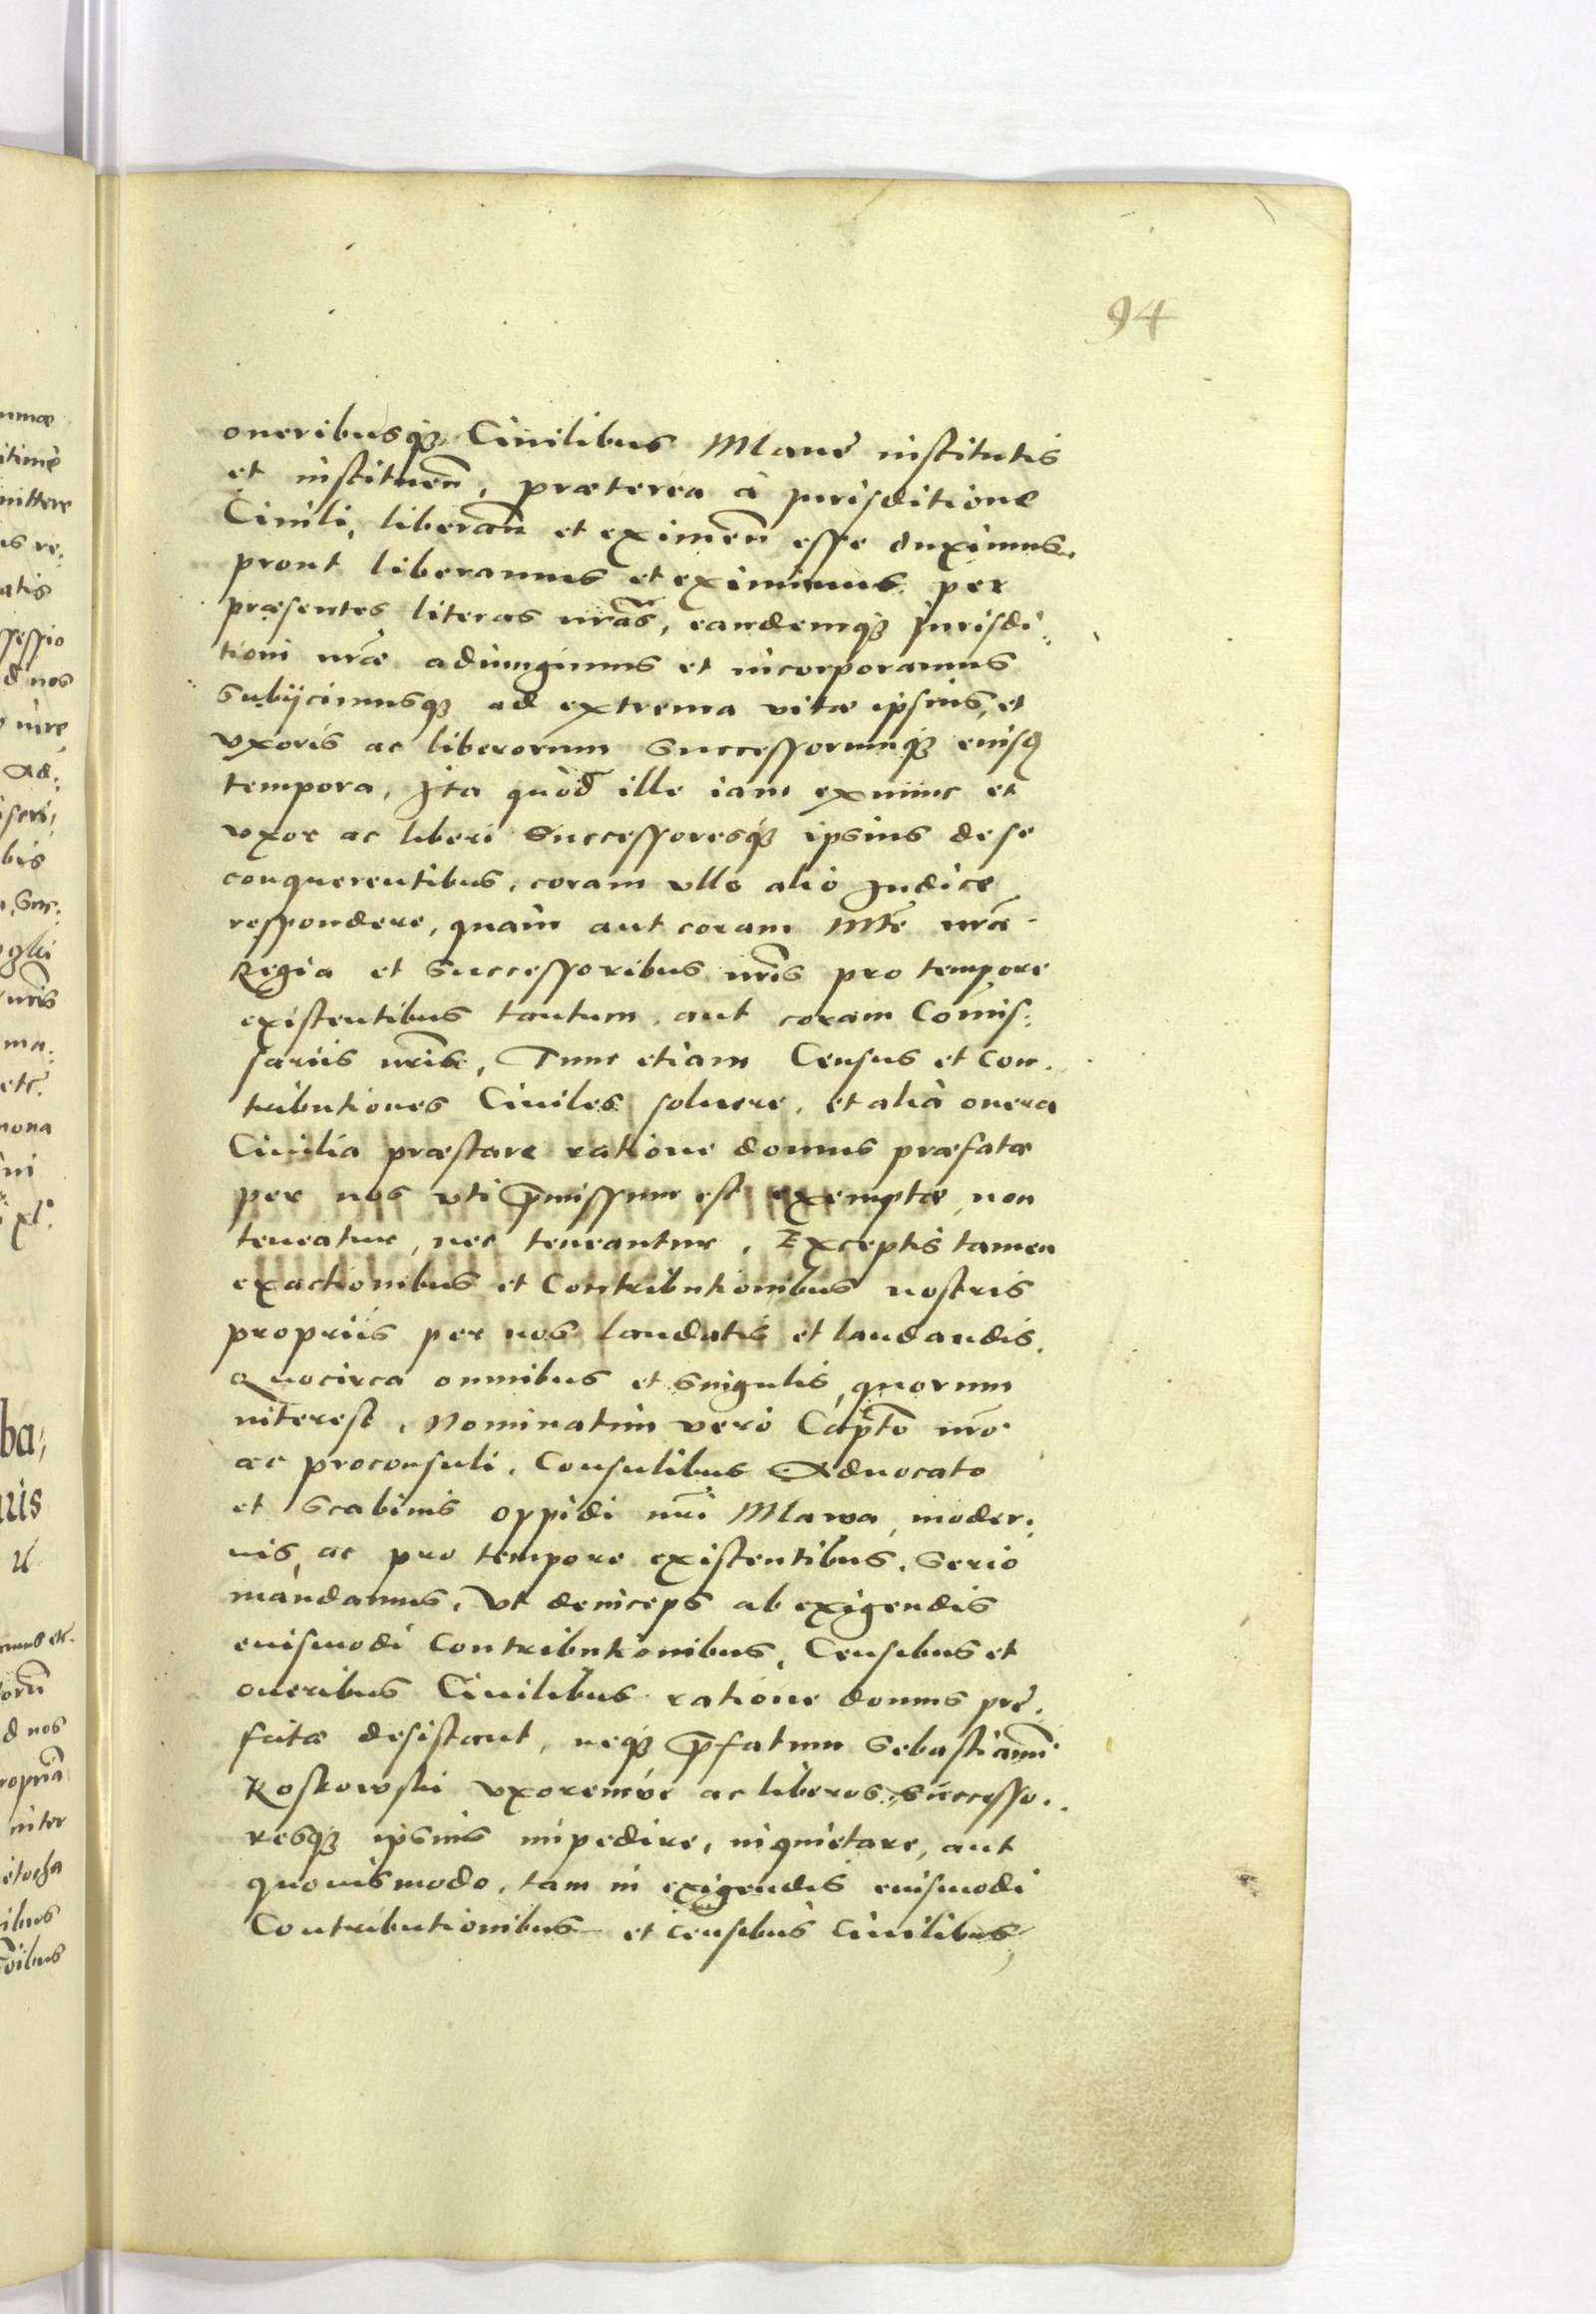 94
oneribusq́ꝫ Ciuilibus Mlaue institutis
et instituen̄, præterea à jurisditione
Ciuili, liberan̄ et eximen̄ esse duximus.
prout liberamus et eximimus per
præsentes literas nr̄as, eandemq́ꝫ Jurisdi:
tioni nr̄æ adiungimus et incorporamus
Subijcimusq́ꝫ ad extrema vitæ ipsius, et
vxoris ac liberorum Successorumq́ꝫ euisꝗ
tempora, Ita quòd ille iam exnunc et
vxor ac liberi Successoresq́ꝫ ipsius de se
conquerentibus, coram vllo alio Judice
respondere, quàm aut coram Mte nr̄a
Regia et Successoribus nr̄is pro tempore
existentibus tantum, aut coram Com̄is:
sariis nr̄is, Tunc etiam Census et Con.
tributiones Ciuiles soluere, et alia onera
Ciuilia præstare ratione domus præfatæ
per nos vti p̄missum est exemptæ, non
teneatur, nec teneantur. Exceptis tamen
exactionibus et Contributionibus nostris
propriis per nos laudatis et laudandis.
Quocirca omnibus et singulis, quorum
interest, Nominatim verò Capt̄o nr̄o
ac proconsuli, Consulibus Aduocato
et Scabinis oppidi nr̄i Mlawa, moder:
nis, ac pro tempore existentibus, Serio
mandamus, Vt deinceps ab exigendis
euismodi Contributionibus, Censibus et
oneribus Ciuilibus ratione domus prę:
fatæ desistant, neqꝫ p̄fatum Sebastianū
Roskowski vxoremúe ac liberos Successo:
resq́ꝫ ipsius impedire, inquietare, aut
quouismodo, tam in exigendis euismodi
Contributionibus et censibus Ciuilibus,